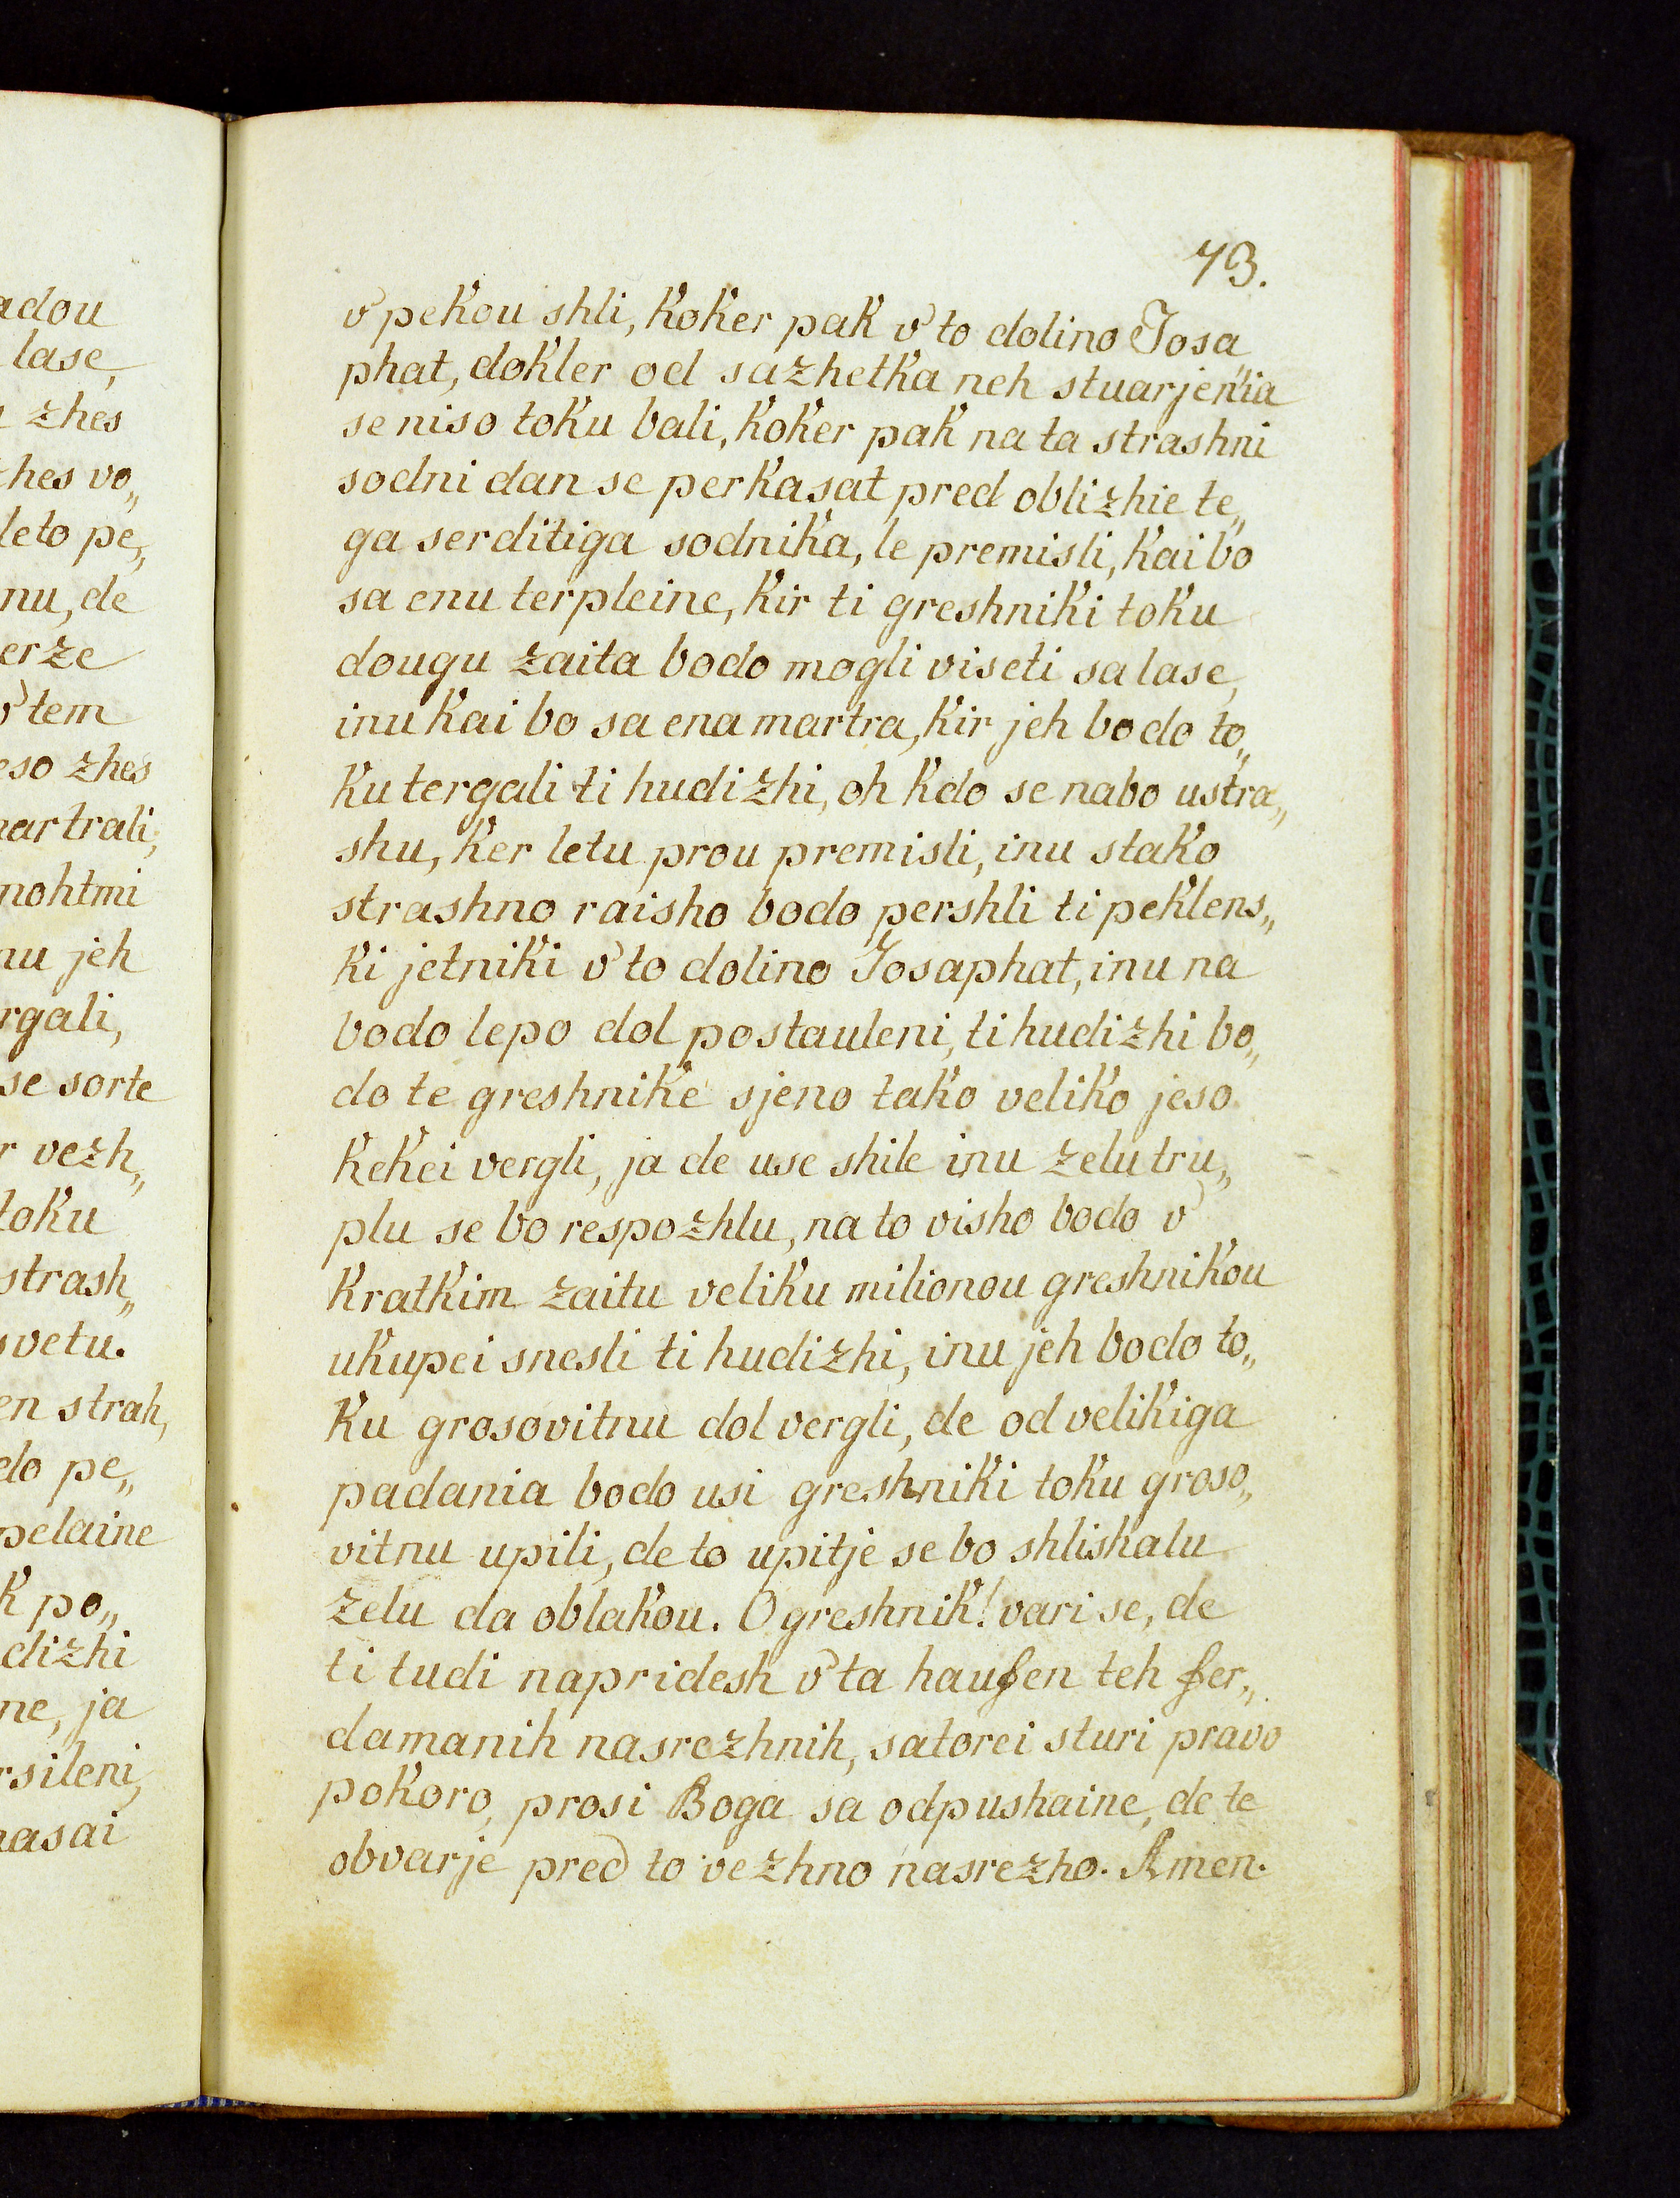 adou
lase,
zhes
hes vo„
leto pe„
nu, de
erze
v tem
eso zhes
martrali,
nohtmi
nu jeh
rgali,
se sorte
r vezh„
toku
strash„
svetu.
en strah,
do pe„
pelaine
k po„
dizhi
ne, ja
rsileni,
nasai
73.
v pekou shli, koker pak v to dolino Josa„
phat, dokler od sazhetka neh stuarjenia
se niso toku bali, koker pak na ta strashni
sodni dan se perkasat pred oblizhie te„
ga serditiga sodnika, le premisli, kai bo
sa enu terpleine, kir ti greshniki toku
dougu zaita bodo mogli viseti sa lase,
inu kai bo sa ena martra, kir jeh bodo to„
ku tergali ti hudizhi, oh kdo se nabo ustra„
shu, ker letu prou premisli, inu stako
strashno raisho bodo pershli ti peklens„
ki jetniki v to dolino Josaphat, inu na
bodo lepo dol postauleni, ti hudizhi bo„
do te greshnike sjeno tako veliko jeso
kekei vergli, ja de use shile inu zelu tru„
plu se bo respozhlu, na to visho bodo v
kratkim zaitu veliku milionou greshnikou
ukupei snesli ti hudizhi, inu jeh bodo to„
ku grosovitnu dol vergli, de od velikiga
padania bodo usi greshniki toku groso„
vitnu upili, de to upitje se bo shlishalu
zelu da oblakou. O greshnik! vari se, de
ti tudi napridesh v ta haufen teh fer„
damanih nasrezhnih, satorei sturi pravo
pokoro, prosi Boga sa odpushaine, de te
obvarje pred to vezhno nasrezho. Amen.